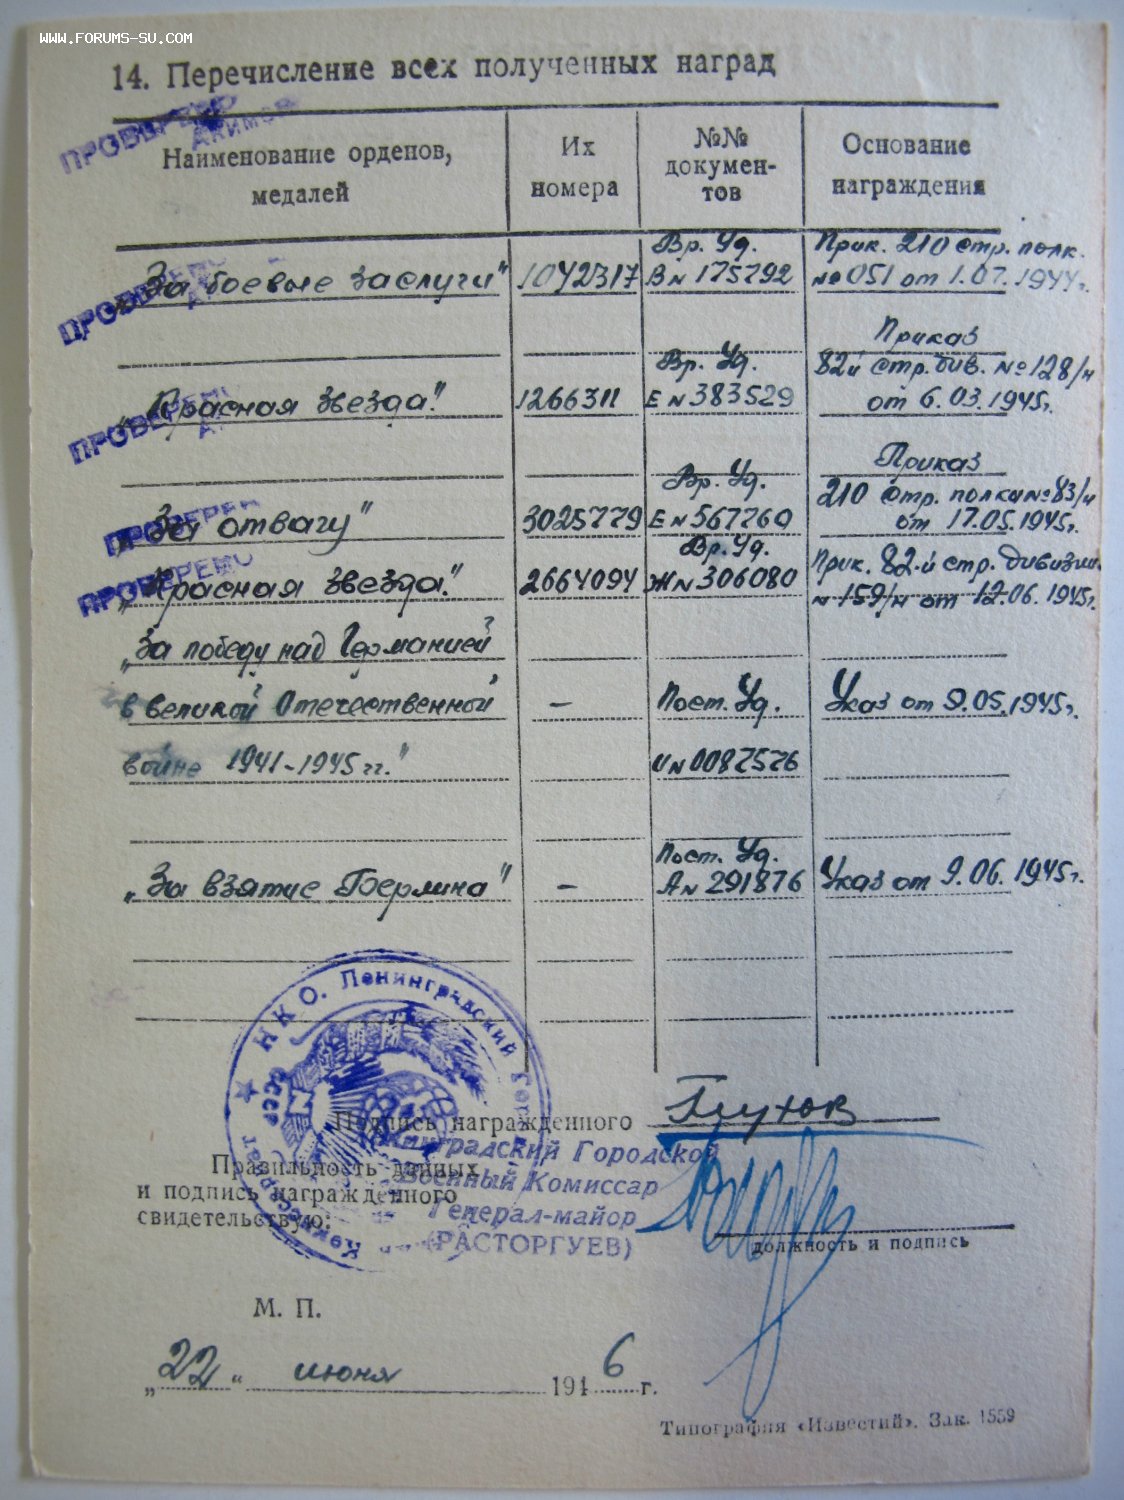 WWW.FORUMS-SU.COM
14. Перечисление всех полученных наград
ПРОВЕРЕНО
Наименование орденов, медалей
Их номера
№№ документов
Основание награждения
ПРОВЕРЕНО
„За боевые заслуги" 1042317 Вр. Уд. В № 175792 Прик. 210 стр. полк. № 051 от 1.07.1944г.
ПРОВЕРЕНО
„Красная звезда." 1266311 Вр. Уд. Е № 383529 Приказ 82й стр. див. № 128/н от 6.03.1945г.
ПРОВЕРЕНО
„За отвагу" 3025779 Вр. Уд. Е № 567760 Приказ 210 стр. полка № 83/н от 17.05.1945г.
ПРОВЕРЕНО
„Красная звезда." 2664094 Вр. Уд. Ж № 306080 Прик. 82-й стр. дивизии № 159/н от 12.06.1945г.
„За победу над Германией
в великой Отечественной – Пост. Уд. Указ от 9.05.1945г.
войне 1941-1945 гг." № 0087576
„За взятие Берлина" – Пост. Уд. А № 291876 Указ от 9.06.1945г.
НКО. Ленинградский Гор
СССР
Подпись награжденного Глухов
Правильность данных
и подпись награжденного
свидетельствую:
Городской
Военный Комиссар
Генерал-майор
(РАСТОРГУЕВ)
должность и подпись
М. П.
„22" июня 1946 г.
Типография «Известий». Зак. 1559